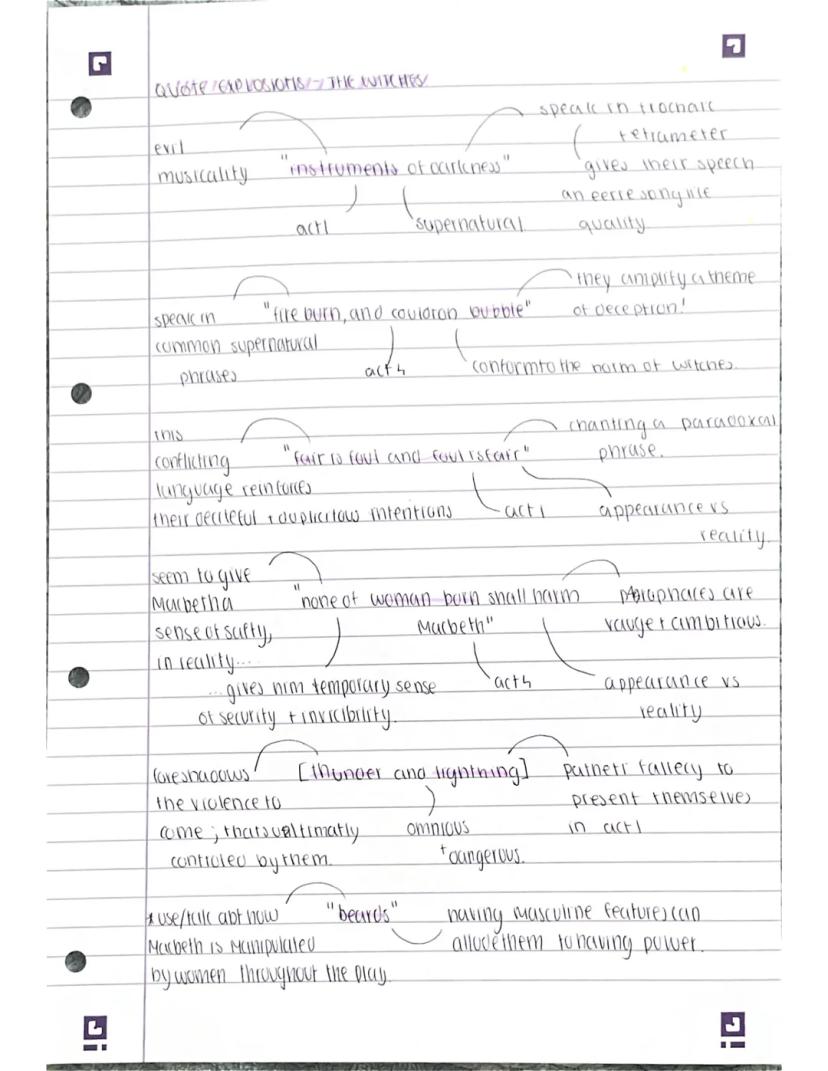 QUOTE EXPLOSIONS -> THE WITCHES
speak in trochaic
evil
tetrameter
musicality "instruments of darkness" gives their speech
an eerie songlike
act 1 supernatural quality
they amplify a theme
speak in "fire burn, and cauldron bubble" of deception!
common supernatural
phrases act 4 conform to the norm of witches.
this chanting a paradoxal
conflicting "fair is foul and foul is fair" phrase.
language reinforces
their deceitful + duplicitous intentions act 1 appearance vs
reality.
seem to give
Macbeth a "none of woman born shall harm are
sense of safty, Macbeth" vauge + ambitious.
in reality...
...gives him temporary sense act 4 appearance vs
of security + invicibility. reality
foreshadows [thunder and lightning] patheti fallecy to
the violence to present themselves
come; thats ultimatly omnious in act 1
controled by them. + dangerous.
* use/talk abt how "beards" having masculine features can
Macbeth is manipulated allude them to having power.
by women throughout the play.